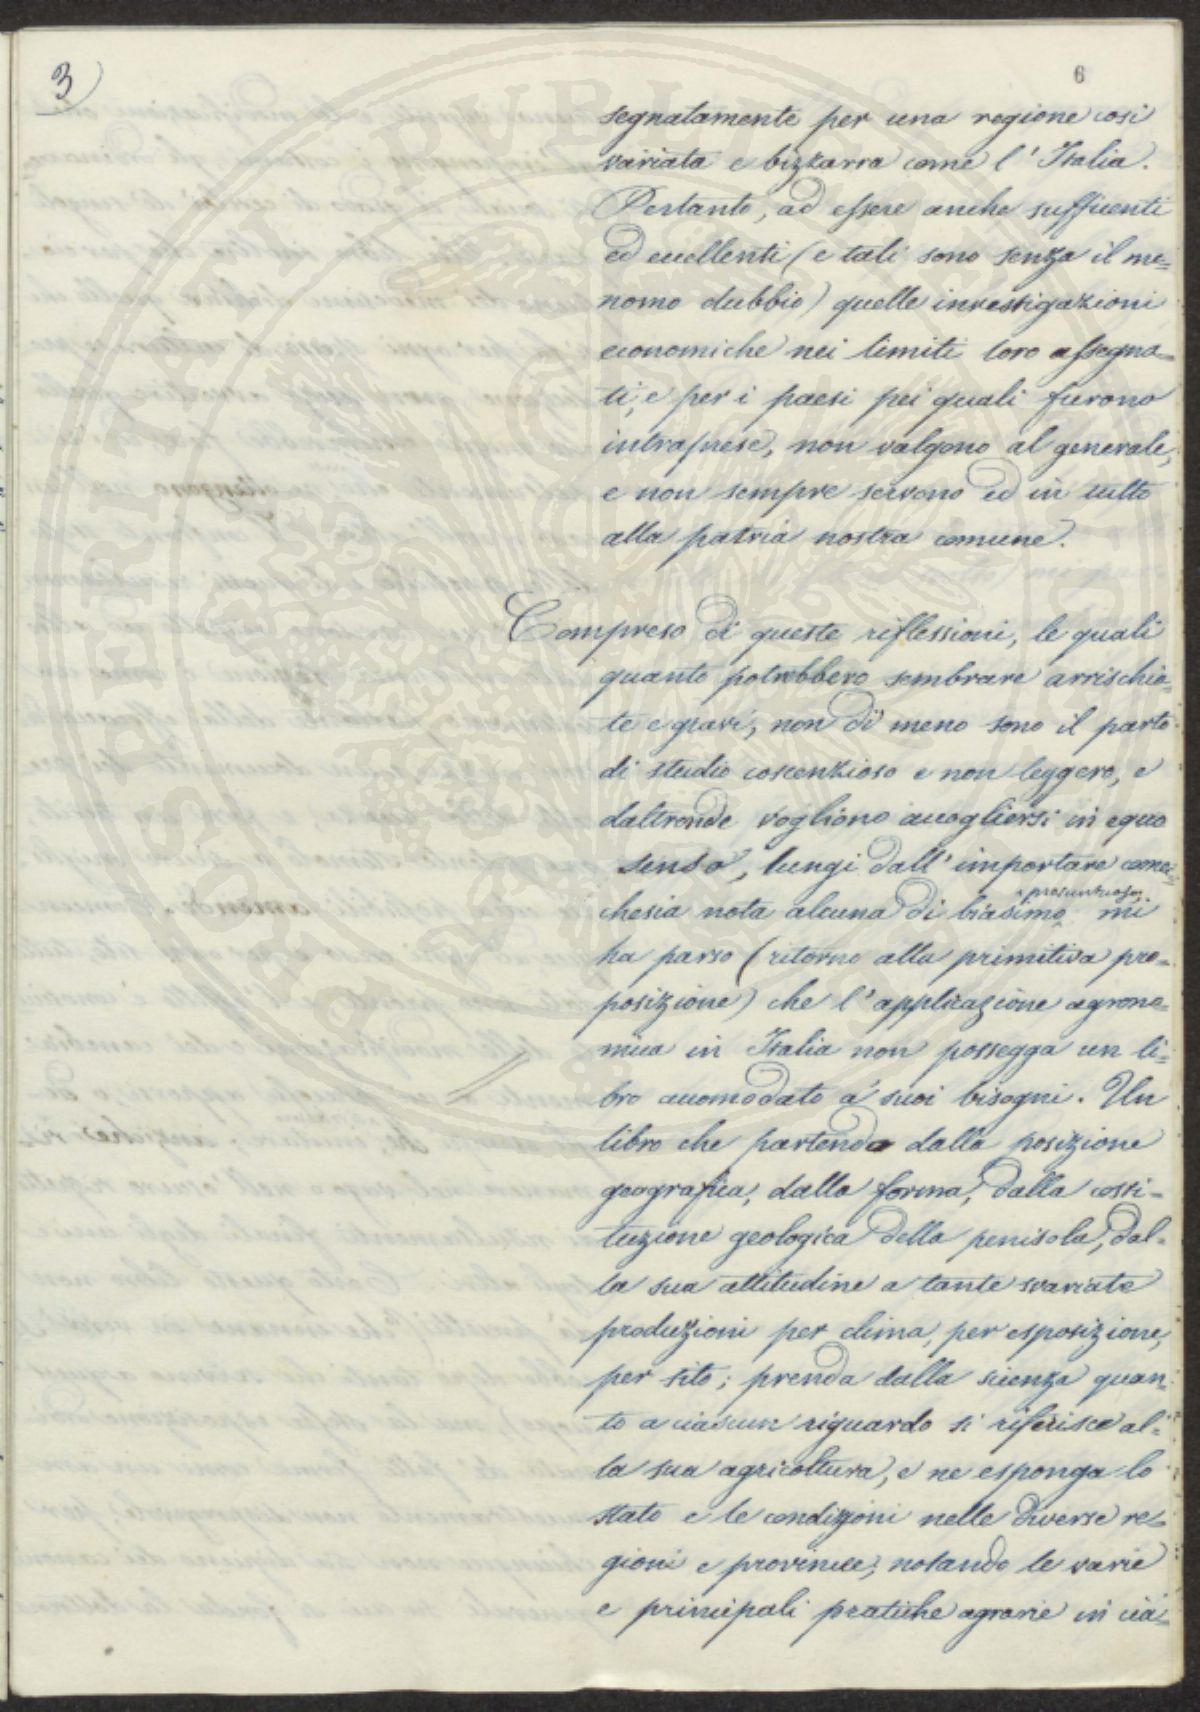 3
6
segnatamente per una regione così
variata e bizzarra come l'Italia.
Pertanto, ad essere anche sufficenti
ed eccellenti (e tali sono senza il me=
nomo dubbio) quelle investigazioni
economiche nei limiti loro assegna=
ti, e per i paesi pei quali furono
intraprese, non valgono al generale,
e non sempre servono ed in tutto
alla patria nostra comune.
Compreso di queste riflessioni, le quali
quanto potrebbero sembrare arrischia=
te e gravi, non di meno sono il parto
di studio coscenzioso e non leggero, e
daltronde vogliono accogliersi in equo
senso, lungi dall'importare comec=
chesia nota alcuna di biasimo presuntuoso, mi
ha parso (ritorno alla primitiva pro=
posizione) che l'applicazione agrono=
mica in Italia non possegga un li=
bro accomodato a' suoi bisogni. Un
libro che partendo dalla posizione
geografica, dalla forma, dalla costi=
tuzione geologica della penisola, dal=
la sua attitudine a tante svariate
produzioni per clima, per esposizione,
per sito; prenda dalla scienza quan=
to a ciascun riguardo si riferisce al=
la sua agricoltura, e ne esponga lo
stato e le condizioni nelle diverse re=
gioni e provincie; notando le varie
e principali pratiche agrarie in cia=